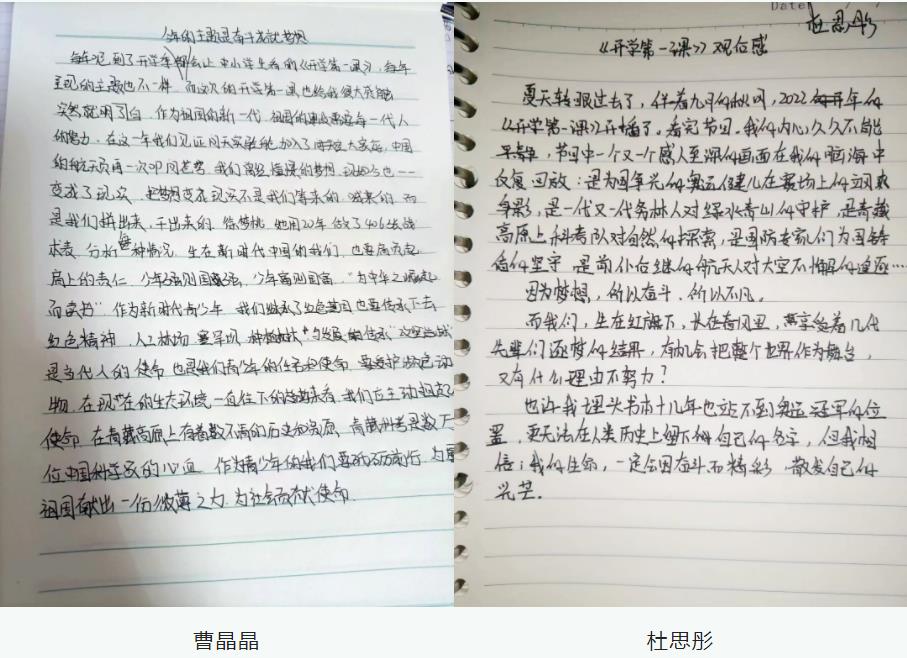 今年的主题是奋斗成就梦想
每年 到了开学季都会让中小学生看的《开学第一课》，每年
呈现的主题也不一样 而这次的开学第一课也给我很大启触
突然就明了白 作为祖国的新一代 祖国的 需要每一代人
的努力 在这一年我们见证问天实验舱加入 大家庭，中国
的航天员再一次叩问苍穹 我们 的梦想 也一一
变成了现实 把梦想变成现实不是我们等来的 来的 而
是我们拼出来，干出来的 徐梦桃 她用20年 做了406 战
术表 分析每种情况 生在新时代中国的我们 也要肩负起
肩上的责任 少年强则国家强，少年富则国富，“为中华之崛起
而读书” 作为新时代青少年 我们继承了红色基因也要传承下去
红色精神 人工林场 塞罕坝
是当代人的使命 也是我们青少年的任务和使命 要爱护 动
物 在现在的生态环境一直往下的 来看 我们应主动担起
使命 在青藏高原上有着数不清的历史和资源 青藏科考 数万
位中国科学家的心血 作为青少年的我们要砥砺前行 为
祖国献出一份微薄之力 为社会而献使命
杜思彤
《开学第一课》观后感
夏天转眼过去了，伴着九月的秋风，2022年的
《开学第一课》开播了。看完节目。我的内心久久不能
平静，节目中一个又一个感人至深的画面在我的脑海中
反复回放：是为国争光的奥运健儿在赛场上的立风
身影，是一代又一代务林人对绿水青山的守护，是青藏
高原上科考队对自然的探索，是国防专家们为国铸
盾的坚守 是前仆后继的航天人对太空不懈的追逐……
因为梦想，所以奋斗．所以不凡。
而我们，生在红旗下，长在春风里，享受着几代
先辈们逐梦的结果，有机会把整个世界作为舞台，
又有什么理由不努力？
也许我埋头书本十几年也站不到奥运冠军的位
置，更无法在人类历史上留下自己的名字，但我相
信：我的生命，一定会因奋斗而精彩 散发自己的
光芒．
曹晶晶
杜思彤